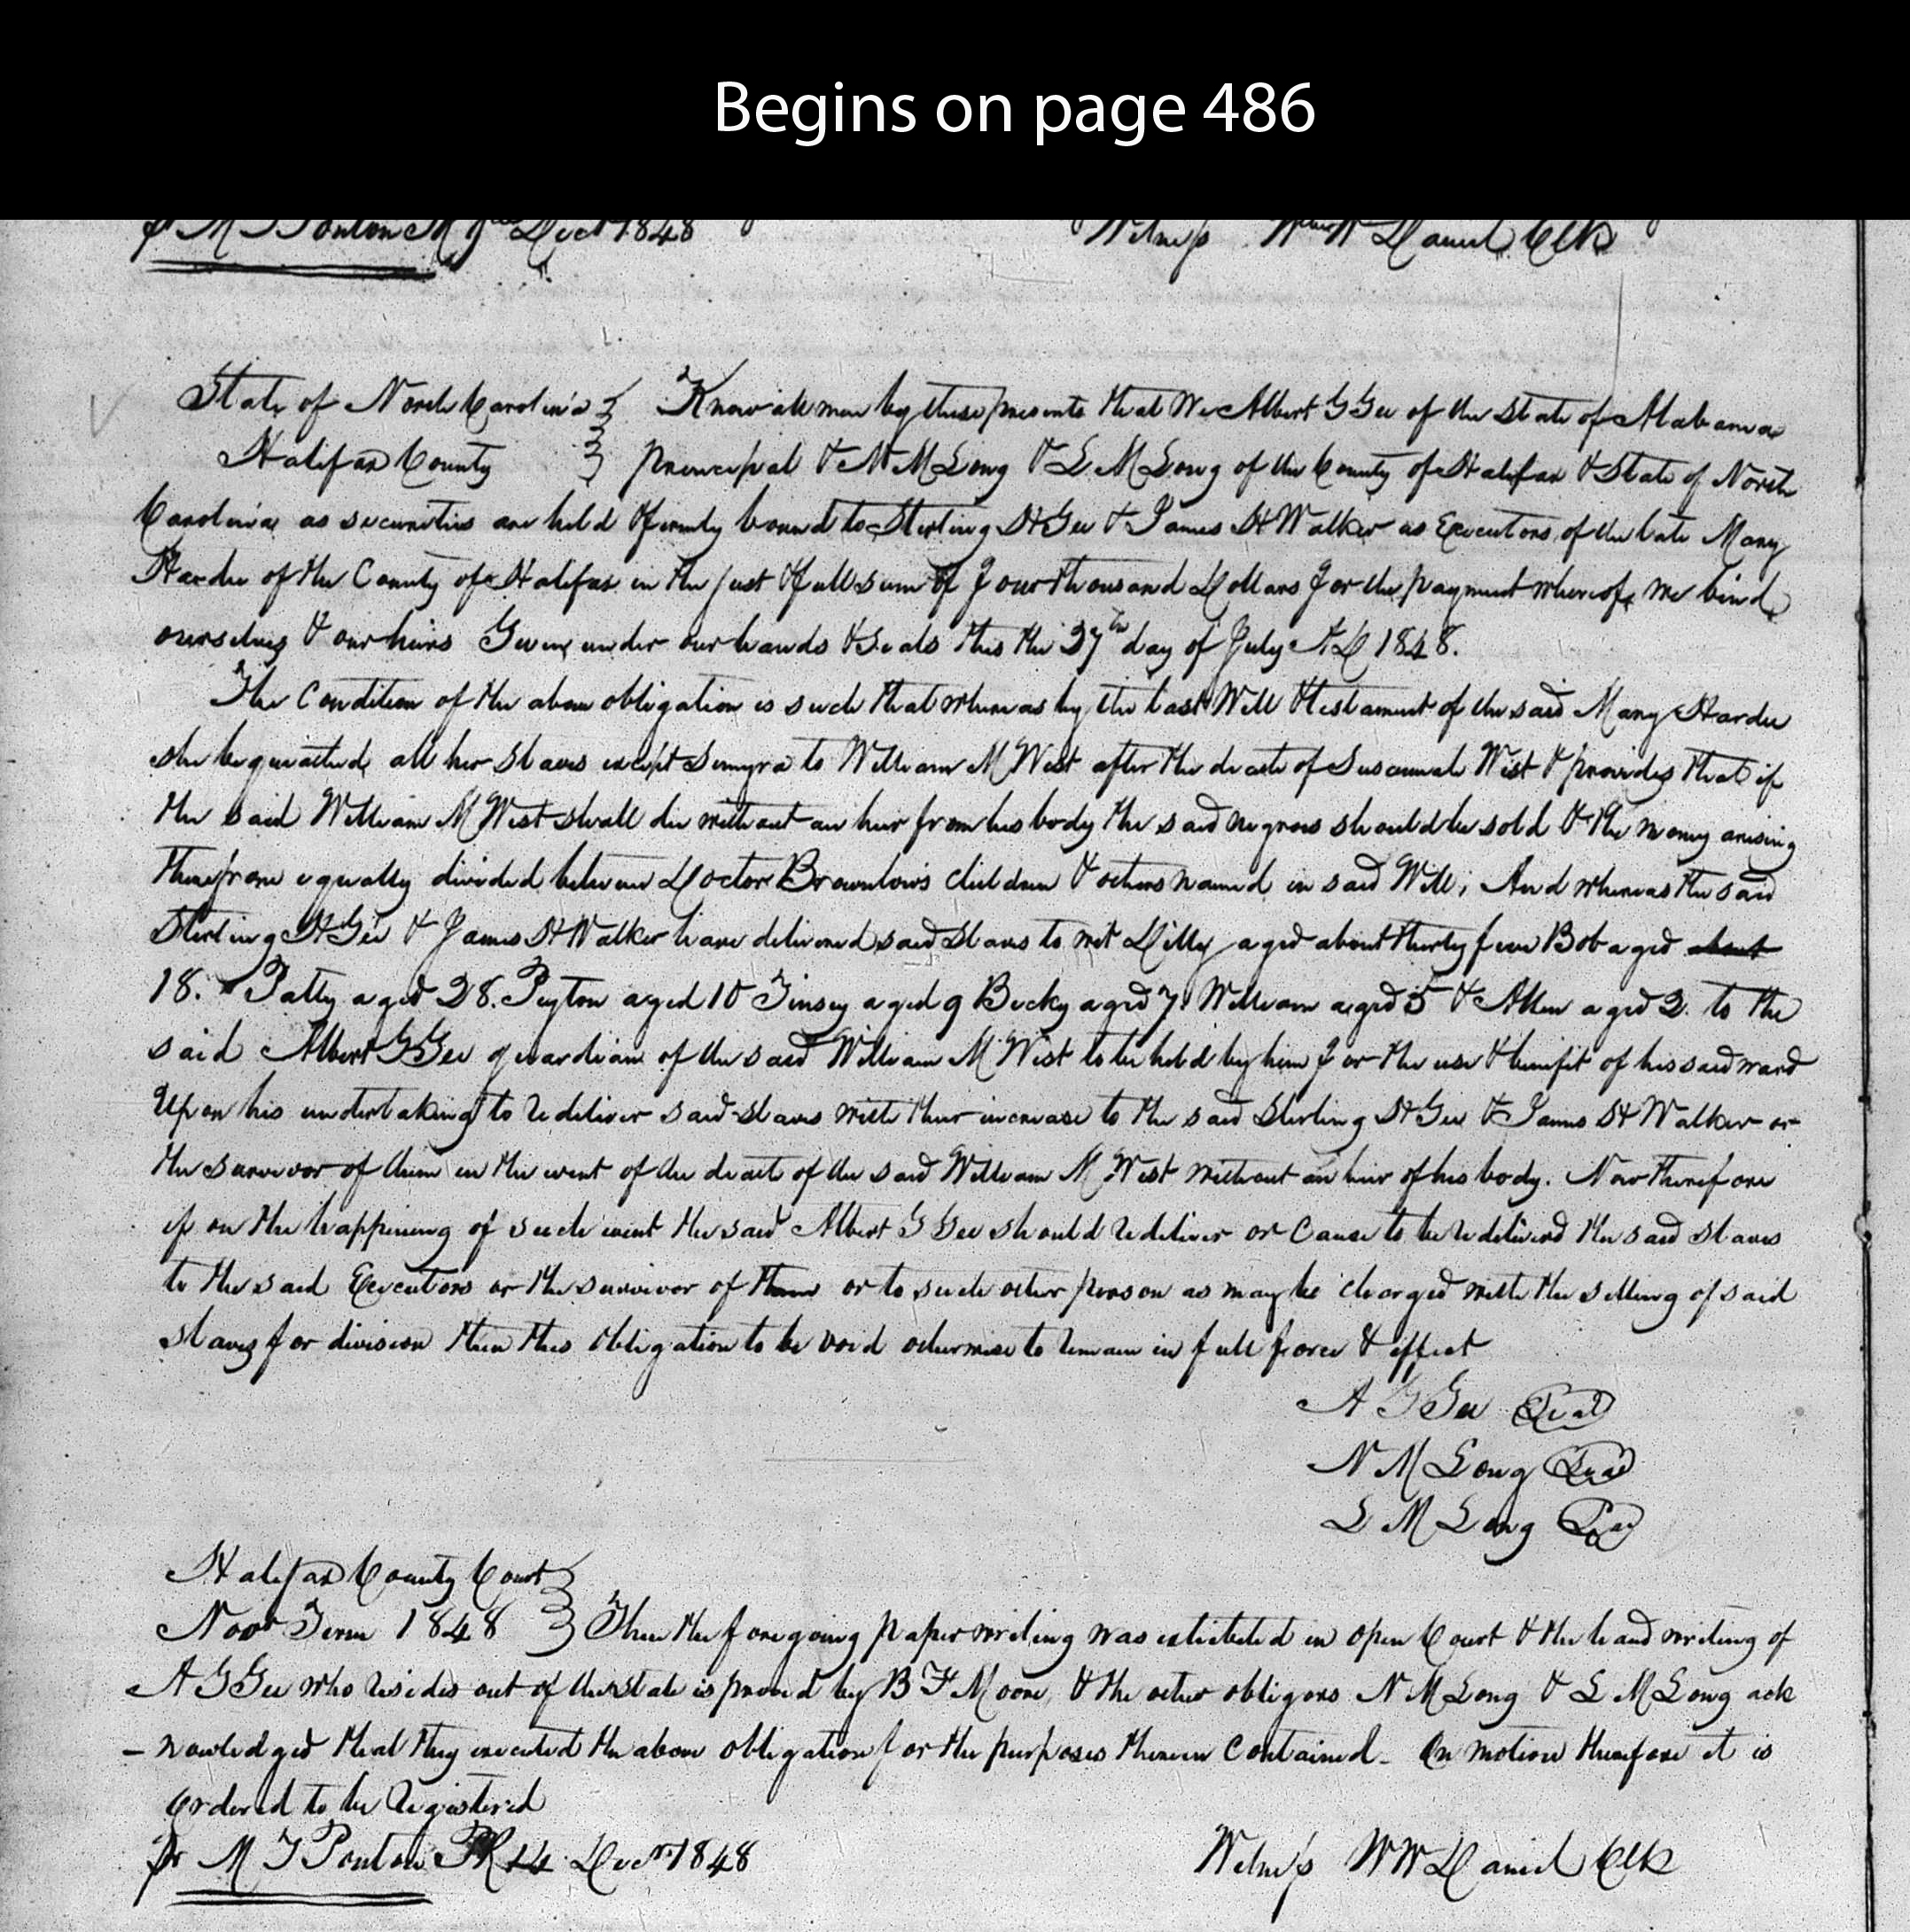 Begins on page 486
Pr M T Ponton Decr 1848 Witness W W Daniel Clk
State of North Carolina } Know all men by these presents that We Albert G Gee of the State of Alabama
Halifax County } principal & N M Long & L M Long of the County of Halifax & State of North
Carolina as securities are held & firmly bound to Sterling H Gee & James H Walker as Executors of the late Mary
Hardee of the County of Halifax in the just & full sum of four thousand Dollars for the payment whereof we bind
ourselves & our heirs Given under our hands & Seals this the 27th day of July A.D 1848.
The Condition of the above obligation is such that whereas by the last Will & testament of the said Mary Hardee
she bequeathed all her slaves except Smyra to William M West after the death of Susannah West & provides that if
the said William M West shall die without an heir from his body the said negroes should be sold & the money arising
therefrom equally divided between Doctor Brownlow's children & others named in said Will; And whereas the said
Sterling H Gee & James H Walker have delivered said slaves to wit Dilly aged about thirty five Bob aged about
18. Patty aged 28. Peyton aged 10 Tinsey aged 9 Becky aged 7 William aged 5 & Allen aged 2. to the
said Albert G Gee guardian of the said William M West to be held by him for the use & benifit of his said ward
Upon his undertaking to redeliver said slaves with their increase to the said Sterling H Gee & James H Walker or
the survivor of them in the event of the death of the said William M West without an heir of his body. Now therefore
if on the happining of such event the said Albert G Gee should redeliver or cause to be redelivered the said slaves
to the said Executors or the survivor of them or to such other person as may be charged with the selling of said
slaves for division then this obligation to be void otherwise to remain in full force & effect
A G Gee Seal
N M Long Seal
L M Long Seal
Halifax County Court }
Novr Term 1848 } Then the foregoing paper writing was exhibited in open Court & the hand writing of
A G Gee who resides out of the State is proved by B F Moore, & the other obligors N M Long & L M Long ack
- nowledged that they executed the above obligation for the purposes therein contained - On motion therefore it is
ordered to be registered
Pr M T Ponton PR 14 Decr 1848 Witness W W Daniel Clk